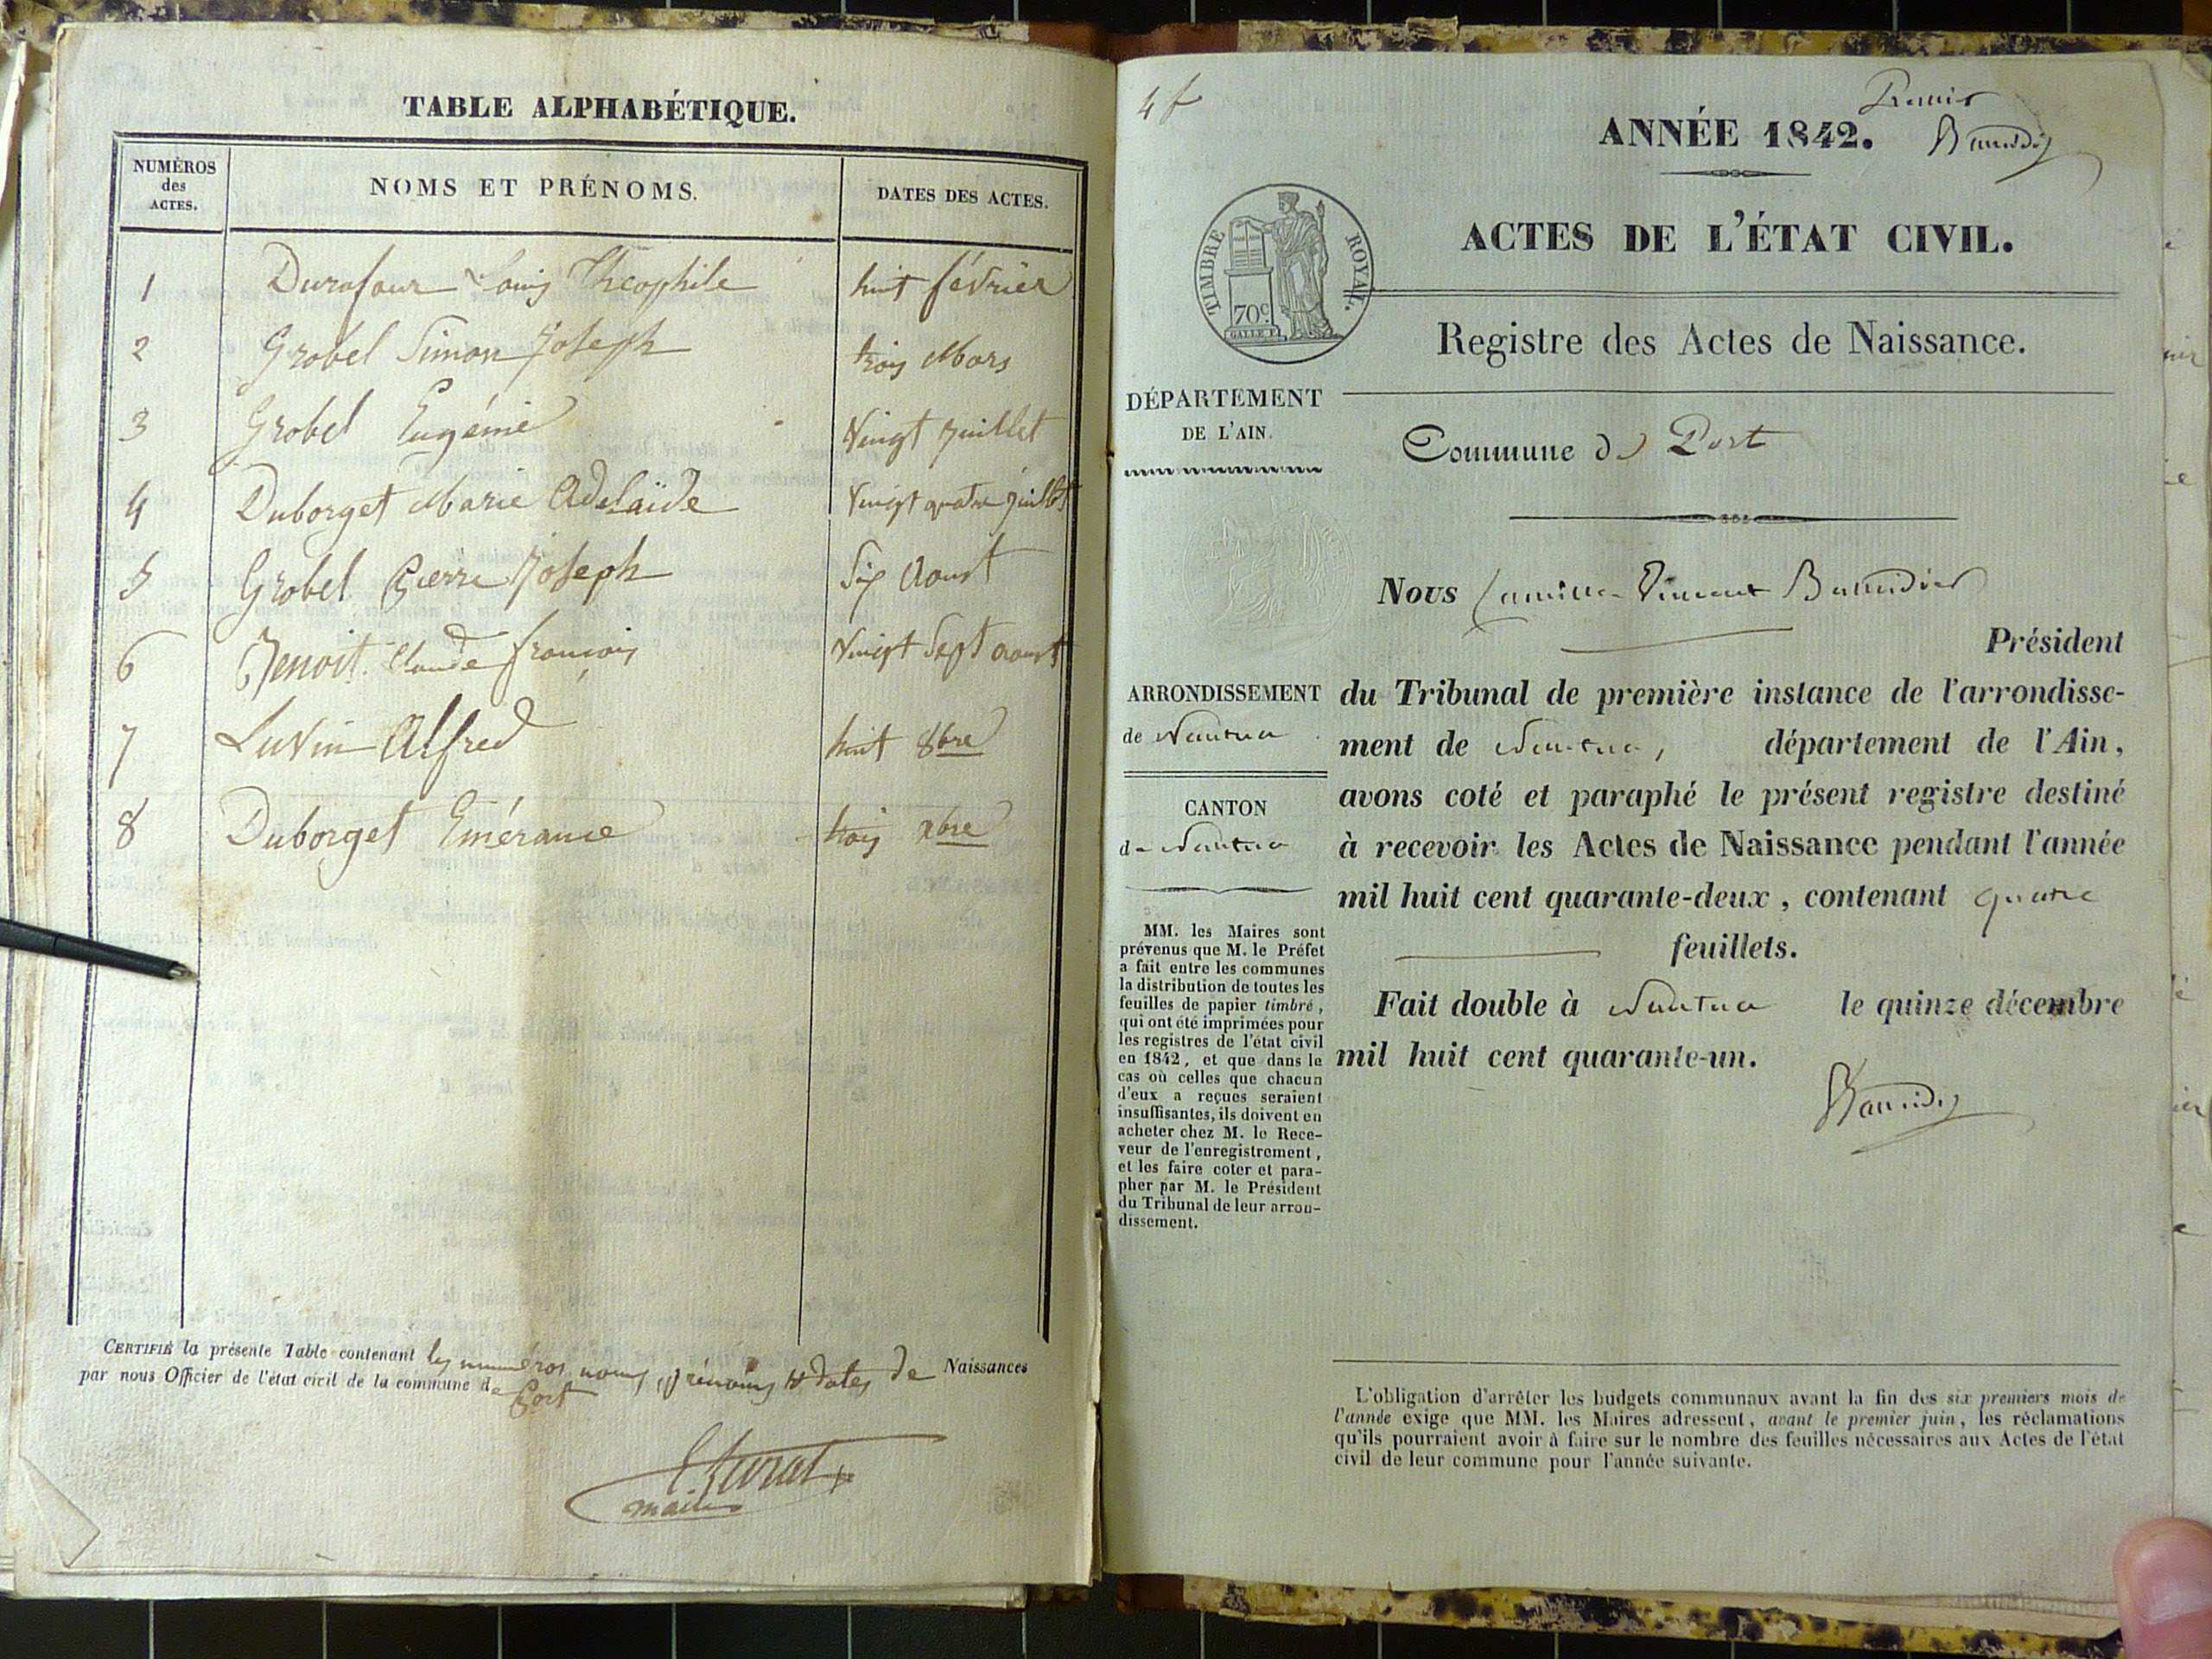 TABLE ALPHABÉTIQUE.
NUMÉROS
des
ACTES.
NOMS ET PRÉNOMS.
DATES DES ACTES.
1 Durafour Louis Theophile huit février
2 Grobel Simon Joseph trois Mars
3 Grobel Eugénie Vingt Juillet
4 Duborget Marie Adelaïde Vingt quatre Juillet
5 Grobel Pierre Joseph Six Aoust
6 Benoit Claude françois Vingt Sept aoust
7 Luvin Alfred huit 8bre
8 Duborget Emérance trois xbre
CERTIFIÉ la présente Table contenant les numéros, noms, prénoms & dates de Naissances
par nous Officier de l'état civil de la commune de Port
maire
4 f
Premier
ANNÉE 1842.
ACTES DE L'ÉTAT CIVIL.
TIMBRE ROYAL.
70c
GALLE F.
Registre des Actes de Naissance.
DÉPARTEMENT
DE L'AIN.
Commune de Port
Nous Camille Vincent Baudier
Président
ARRONDISSEMENT
de Nantua
CANTON
de Nantua
du Tribunal de première instance de l'arrondisse-
ment de Nantua, département de l'Ain,
avons coté et paraphé le présent registre destiné
à recevoir les Actes de Naissance pendant l'année
mil huit cent quarante-deux, contenant quatre
feuillets.
Fait double à Nantua le quinze décembre
mil huit cent quarante-un.
MM. les Maires sont
prévenus que M. le Préfet
a fait entre les communes
la distribution de toutes les
feuilles de papier timbré,
qui ont été imprimées pour
les registres de l'état civil
en 1842, et que dans le
cas où celles que chacun
d'eux a reçues seraient
insuffisantes, ils doivent en
acheter chez M. le Rece-
veur de l'enregistrement,
et les faire coter et para-
pher par M. le Président
du Tribunal de leur arron-
dissement.
L'obligation d'arrêter les budgets communaux avant la fin des six premiers mois de
l'année exige que MM. les Maires adressent, avant le premier juin, les réclamations
qu'ils pourraient avoir à faire sur le nombre des feuilles nécessaires aux Actes de l'état
civil de leur commune pour l'année suivante.